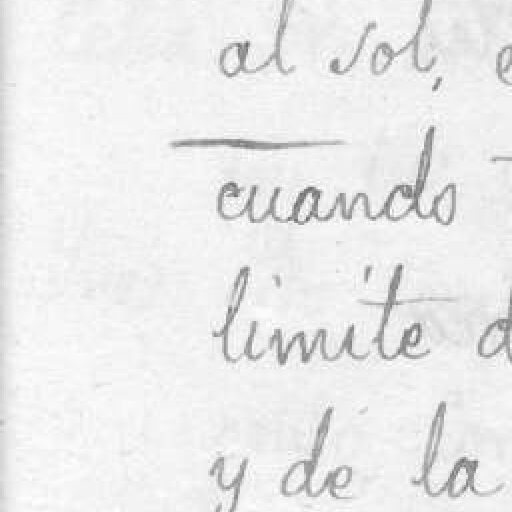 al sol,
cuando
limite
y de la